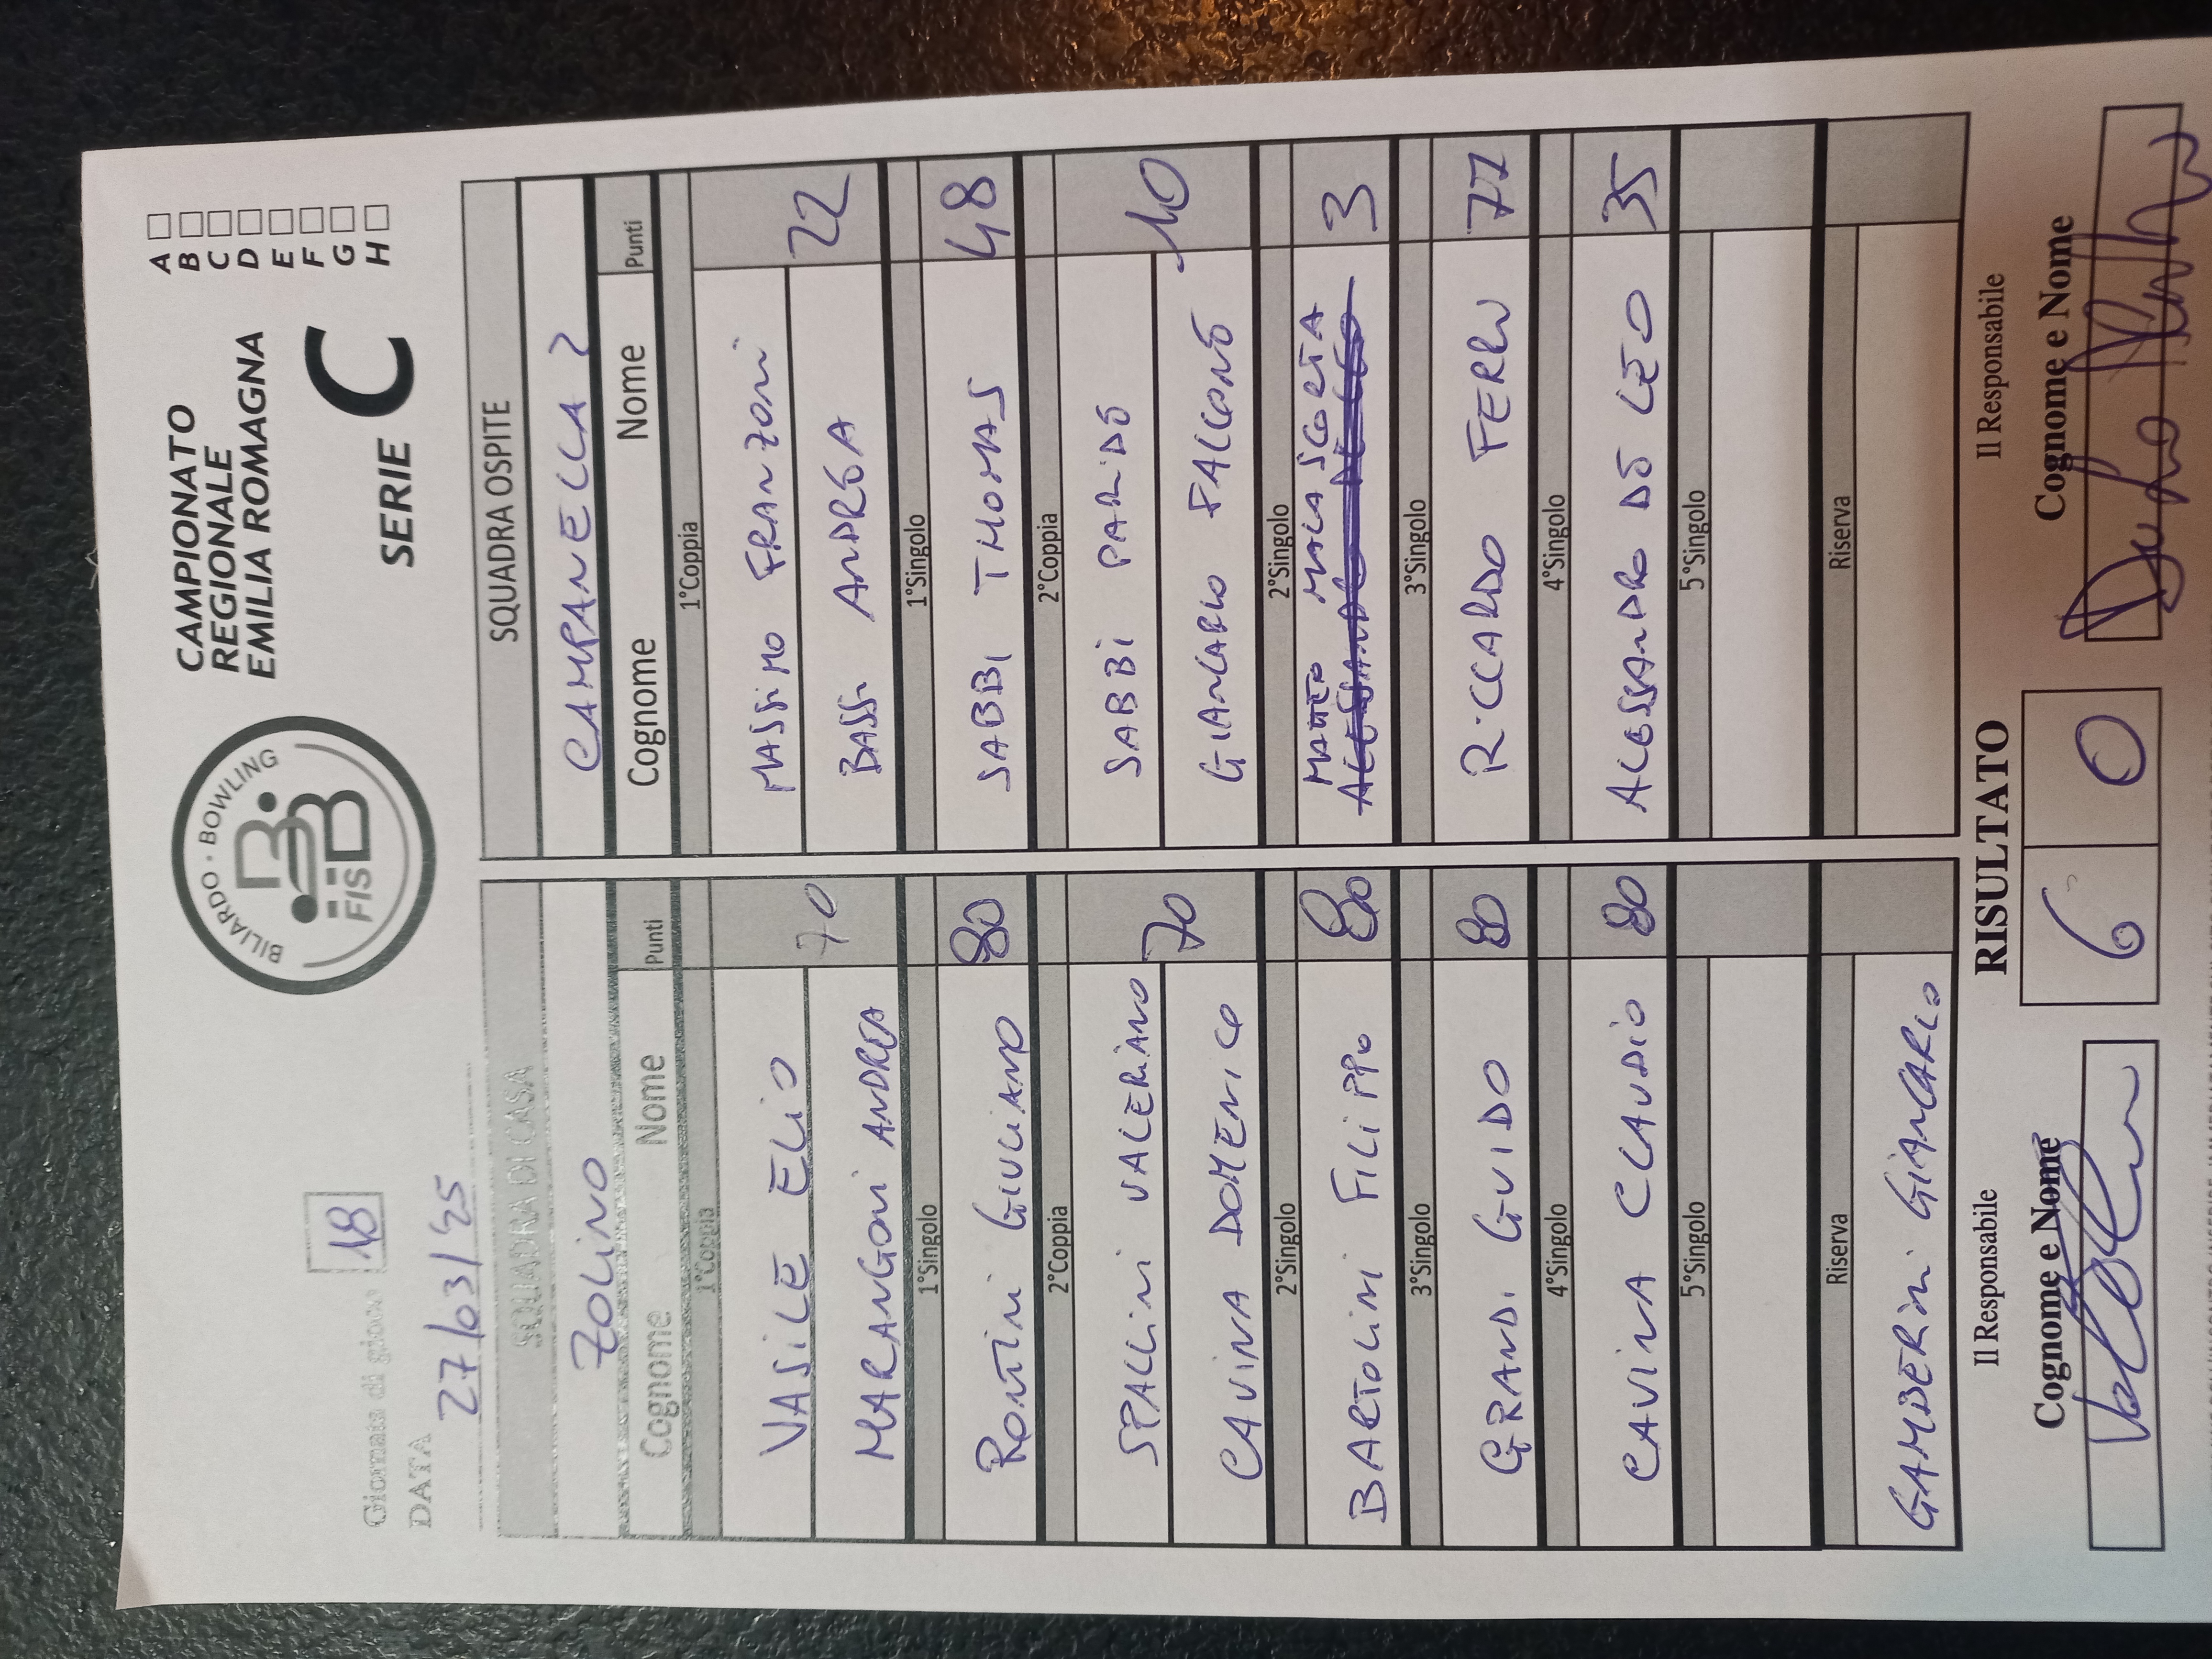 BILIARDO · BOWLING
FISBB
CAMPIONATO
REGIONALE
EMILIA ROMAGNA
SERIE C
A
B
C
D
E
F
G
H
Giornata di gioco 18
DATA 27/03/25
SQUADRA DI CASA
ZOLINO
Cognome Nome Punti
1°Coppia
VASILE ELIO
MARANGONI ANDREA
70
1°Singolo
RONTINI GIULIANO 80
2°Coppia
SPALLINI VALERIANO
CAVINA DOMENICO
70
2°Singolo
BARTOLINI FILIPPO 80
3°Singolo
GRANDI GUIDO 80
4°Singolo
CAVINA CLAUDIO 80
5°Singolo
Riserva
GAMBERINI GIANCARLO
SQUADRA OSPITE
CAMPANELLA 2
Cognome Nome Punti
1°Coppia
MASSIMO FRANZONI
BASSI ANDREA
22
1°Singolo
SABBI THOMAS 48
2°Coppia
SABBI PARIDE
GIANCARLO FALCONE
10
2°Singolo
MATTEO MALA SCORTA 3
3°Singolo
RICCARDO FERRO 77
4°Singolo
ALESSANDRO DE LEO 35
5°Singolo
Riserva
Il Responsabile
Cognome e Nome
RISULTATO
6 0
Il Responsabile
Cognome e Nome